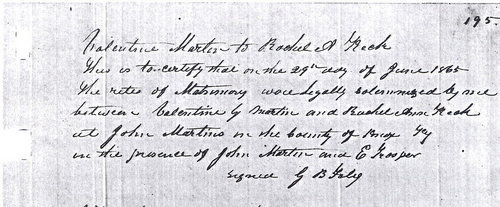 195.
Valentine Martin to Rachel A Keck
This is to certify that on the 29th day of June 1865
The rites of Matrimony were legally solemnized by me
between Valentine G Martin and Rachel Ann Keck
at John Martins in the County of Knox Ky
in the presence of John Martin and E
signed G B